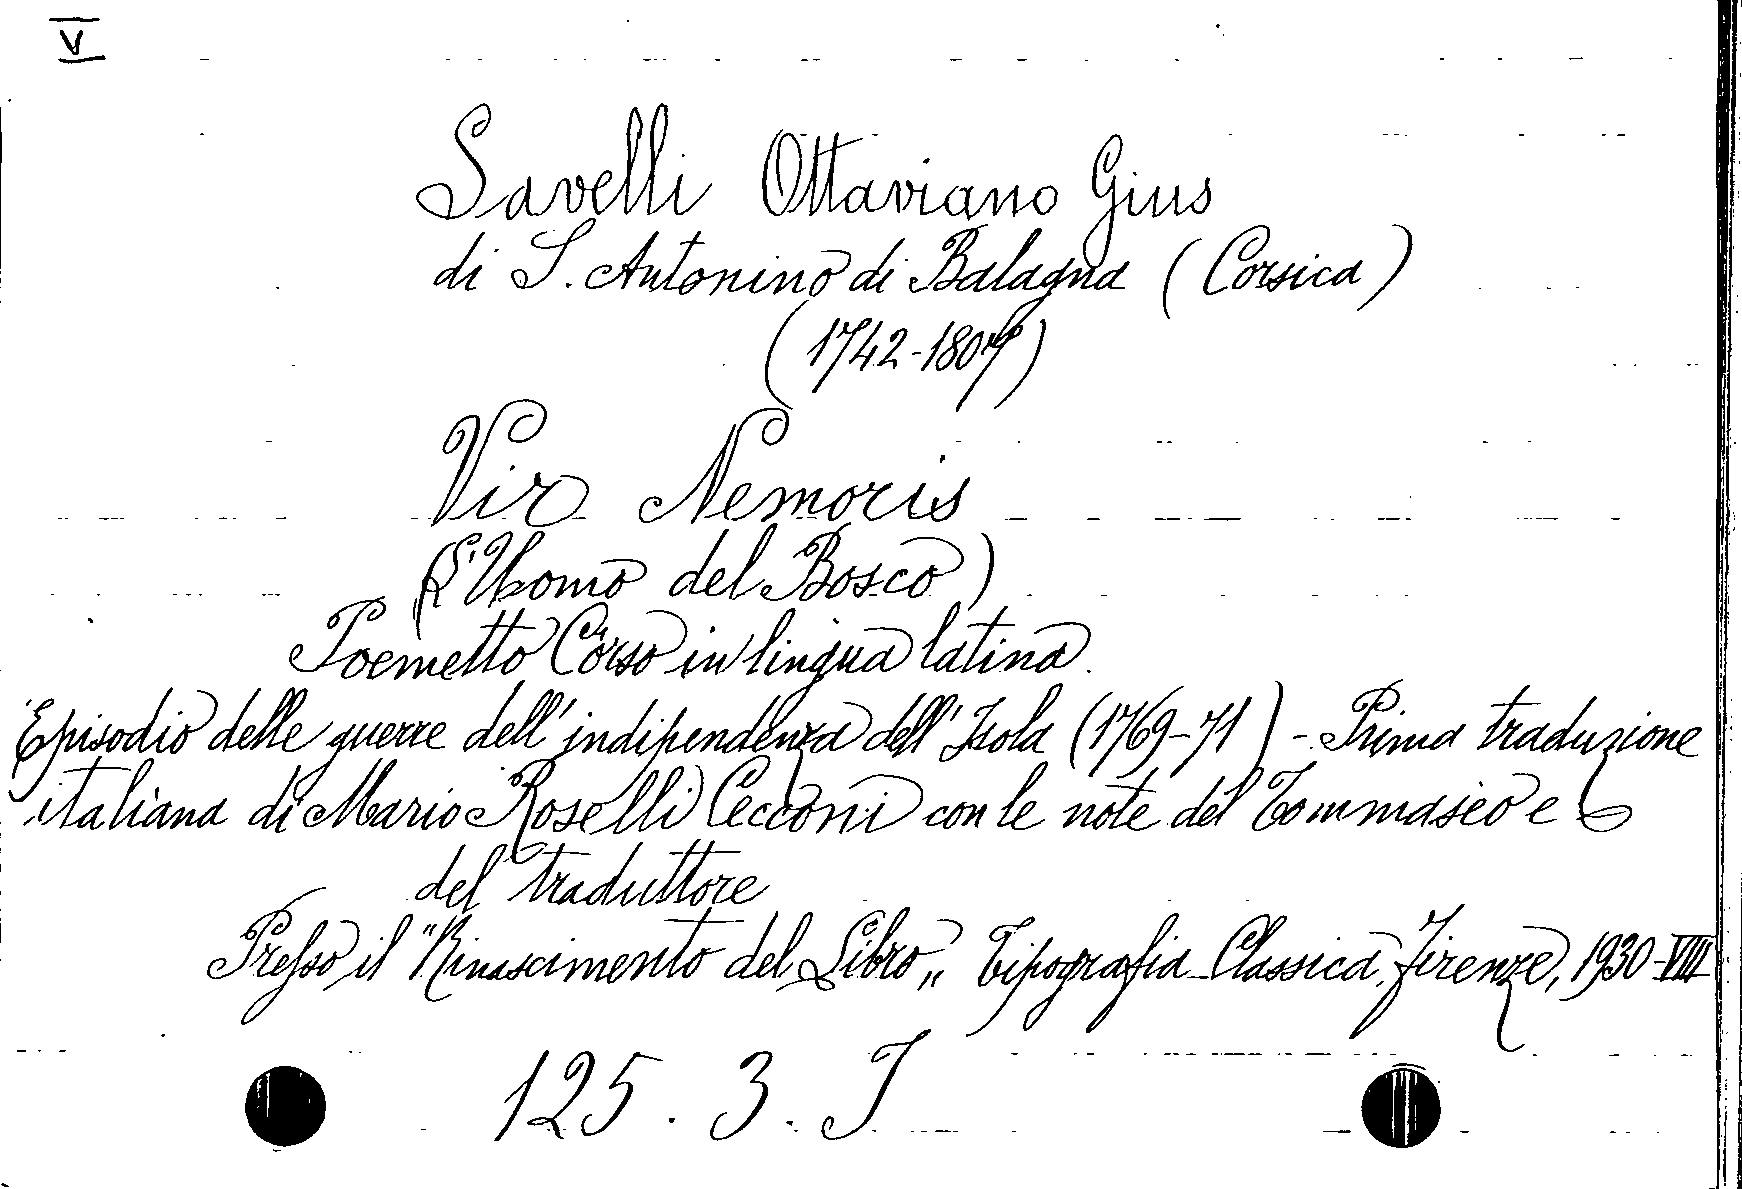 V
Savelli Ottaviano Gius
di S. Antonino di Balagna (Corsica)
(1742-1807)
Vir Nemoris
(L'Uomo del Bosco)
Poemetto Còrso in lingua latina.
Episodio delle guerre dell'indipendenza dell'Isola (1769-71) - Prima traduzione
italiana di Mario Roselli Cecconi con le note del Tommaseo e
del traduttore
Presso il "Rinascimento del Libro„ Tipografia Classica, Firenze, 1930-VIII
125. 3. I